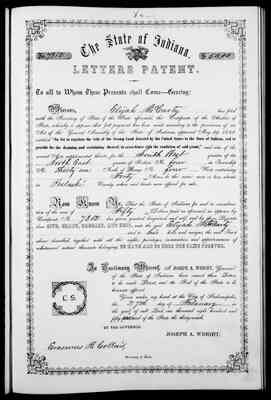 The State of Indiana.
LETTERS PATENT.
To all to Whom These Presents shall Come—Greeting:
Whereas, Elijah McCarty has filed
with the Secretary of State of the State aforesaid, the Certificate of the Auditor of
State, whereby it appears that full payment has been made according to the provisions of an
Act of the General Assembly of the State of Indiana approved May
entitled "An Act to regulate the sale of the Swamp Land donated by the United States to the State of Indiana, and to
provide for the draining and reclaiming thereof, in accordance with the condition of said grant," and also of the
several Acts supplemental thereto, for the South West quarter of the
North East quarter of Section No. four in Township
No. Thirty one North of Range No. four West containing
Forty Acres, more or less, situate
in Pulaski County, which said lands were offered for sale.
Now Know Ye, That the State of Indiana for and in consideration
of the sum of Fifty Dollars paid as aforesaid, as appears by
Certificate No. 7810 has given, granted, bargained and sold, and by these Presents
does GIVE, GRANT, BARGAIN, AND SELL, unto the said Elijah McCarty
and to his heirs and assigns, the said tract
above described, together with all the rights, privileges, immunities and appurtenances of
whatsoever nature thereunto belonging; TO HAVE AND TO HOLD THE SAME FOREVER.
In Testimony Whereof, I, JOSEPH A. WRIGHT, Governor
of the State of Indiana, have caused these Letters
to be made Patent, and the Seal of the State to be
hereunto affixed.
L.S.
Given under my hand at the City of Indianapolis,
the day of January in the
year of our Lord, one thousand eight hundred and
fifty and of the State the
BY THE GOVERNOR
JOSEPH A. WRIGHT.
Erasmus B. Collins
Secretary of State.